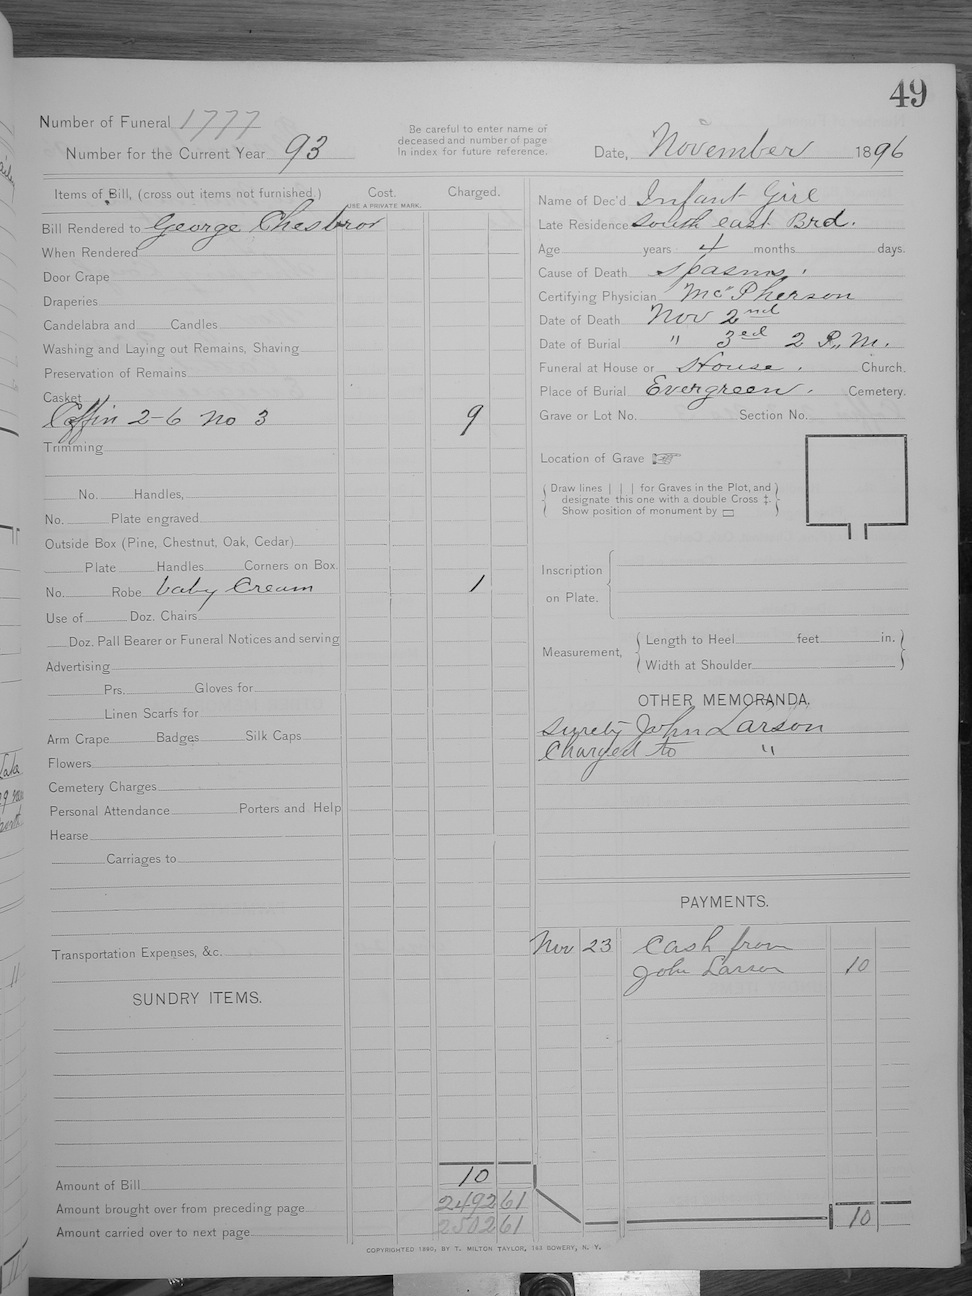 49
Number of Funeral 1777
Number for the Current Year 93
Be careful to enter name of
deceased and number of page
in index for future reference.
Date, November 1896
Items of Bill, (cross out items not furnished.) Cost. Charged.
USE A PRIVATE MARK.
Bill Rendered to George Chesbror
When Rendered
Door Crape
Draperies
Candelabra and Candles
Washing and Laying out Remains, Shaving
Preservation of Remains
Casket
Coffin 2-6 No 3 9
Trimming
No. Handles,
No. Plate engraved
Outside Box (Pine, Chestnut, Oak, Cedar)
Plate Handles Corners on Box.
No. Robe baby Cream 1
Use of Doz. Chairs
Doz. Pall Bearer or Funeral Notices and serving
Advertising
Prs. Gloves for
Linen Scarfs for
Arm Crape Badges Silk Caps
Flowers
Cemetery Charges
Personal Attendance Porters and Help
Hearse
Carriages to
Transportation Expenses, &c.
SUNDRY ITEMS.
Amount of Bill 10
Amount brought over from preceding page 2492 61
Amount carried over to next page. 2502 61
Name of Dec'd Infant Girl
Late Residence South east Brd.
Age years 4 months days.
Cause of Death Spasms.
Certifying Physician McPherson
Date of Death Nov 2nd
Date of Burial " 3ed 2 P.M.
Funeral at House or House. Church.
Place of Burial Evergreen. Cemetery.
Grave or Lot No. Section No.
Location of Grave
Draw lines | | | for Graves in the Plot, and
designate this one with a double Cross ‡.
Show position of monument by ▭
Inscription
on Plate.
Measurement,
Length to Heel feet in.
Width at Shoulder
OTHER MEMORANDA.
Surety John Larson
Charged to "
PAYMENTS.
Nov 23 Cash from
John Larson 10
10
COPYRIGHTED 1890, BY T. MILTON TAYLOR, 163 BOWERY, N. Y.